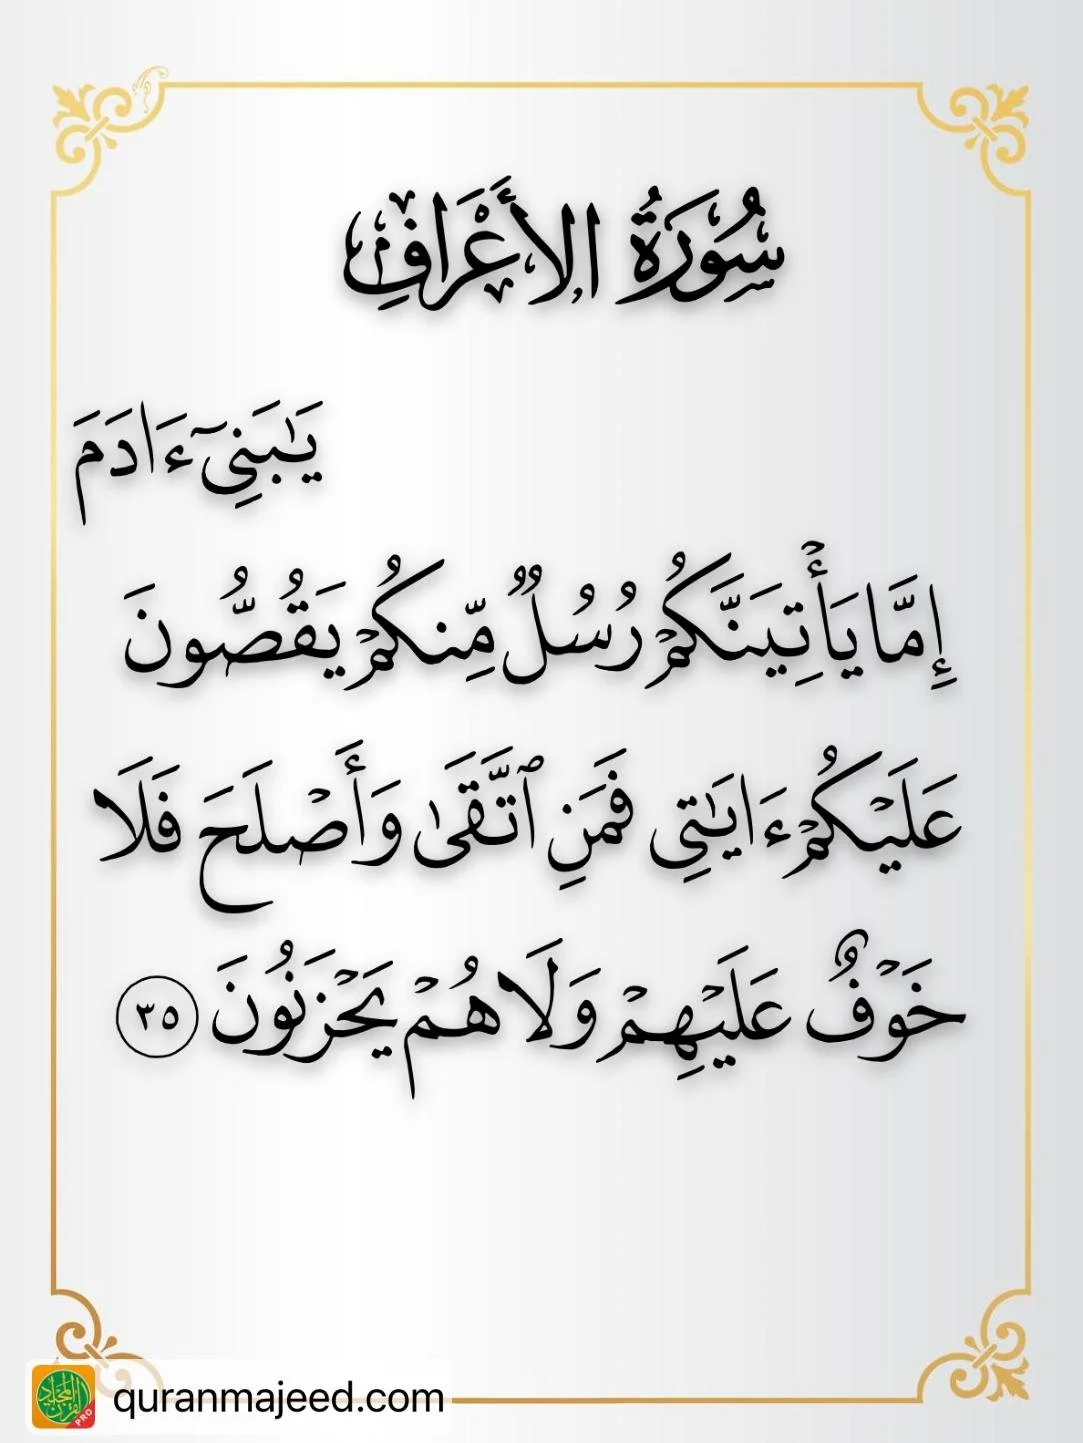 سُورَةُ الأَعْرَافِ
يَـٰبَنِىٓ ءَادَمَ
إِمَّا يَأْتِيَنَّكُمْ رُسُلٌ مِّنكُمْ يَقُصُّونَ
عَلَيْكُمْ ءَايَـٰتِى فَمَنِ ٱتَّقَىٰ وَأَصْلَحَ فَلَا
خَوْفٌ عَلَيْهِمْ وَلَا هُمْ يَحْزَنُونَ ٣٥
القرآن المجيد
PRO
quranmajeed.com